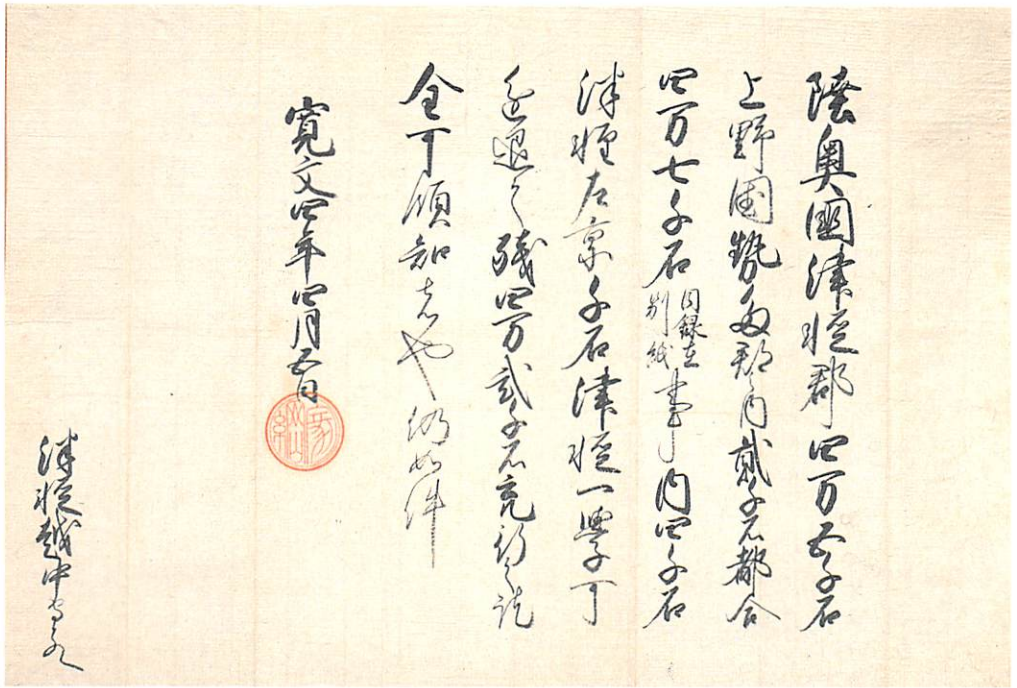 陸奥國津軽郡四万五千石
上野國勢多郡之内貳千石都合
四万七千石目録在別紙事内四千石
津軽左京千石津軽一學可
進退之残四万貳千石充行之訖
全可領知者也仍如件
寛文四年四月五日
家綱
津軽越中守とのへ